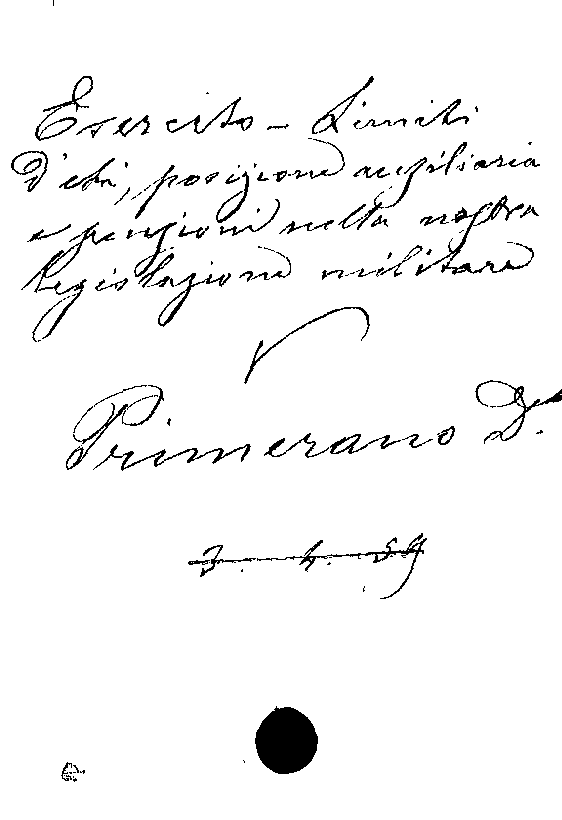 Esercito - Limiti
D'età, posizione ausiliaria
e pensioni nella nostra
legislazione militare
V
Primerano D.
3. 4. 59